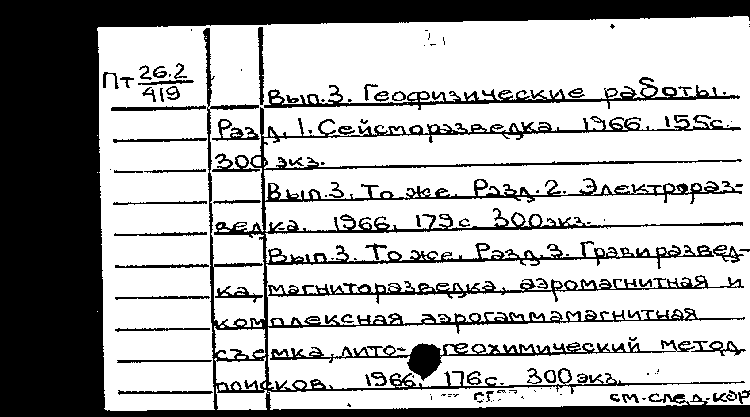 2.
Пт 26.2
419
Вып.3. Геофизические работы.
Разд. 1. Сейсморазведка. 1966. 155с.
300 экз.
Вып.3. То же. Разд. 2. Электрораз-
ведка. 1966. 179с. 300экз.
Вып.3. То же. Разд. 3. Гравиразвед-
ка, магниторазведка, аэромагнитная и
комплексная аэрогаммамагнитная
съемка, лито-геохимический метод
поисков. 1966. 176с. 300экз.
см.след.кар